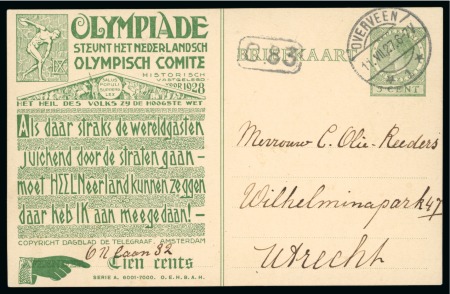 OLYMPIADE
STEUNT HET NEDERLANDSCH
OLYMPISCH COMITE
HISTORISCH
VASTGELEGD
VOOR 1928
SALUS
POPULI
SUPREMA
LEX
IX
HET HEIL DES VOLKS ZY DE HOOGSTE WET
Als daar straks de wereldgasten
juichend door de straten gaan —
moet HEEL Neerland kunnen zeggen
daar heb IK aan meegedaan! —
COPYRIGHT DAGBLAD DE TELEGRAAF, AMSTERDAM
Tien cents
SERIE A. 6001-7000. O.E.H.B.A.H.
BRIEFKAART
G 83
OVERVEEN
5 CENT
Mevrouw C. Olie-Reeders
Wilhelminapark 47
Utrecht